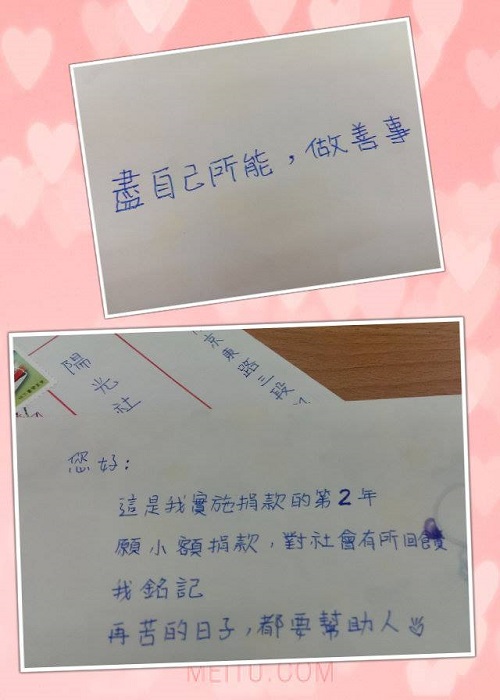 盡自己所能，做善事
陽光社
京東路三段
您好：
這是我實施捐款的第2年
願小額捐款，對社會有所回饋
我銘記
再苦的日子，都要幫助人
MEITU.COM